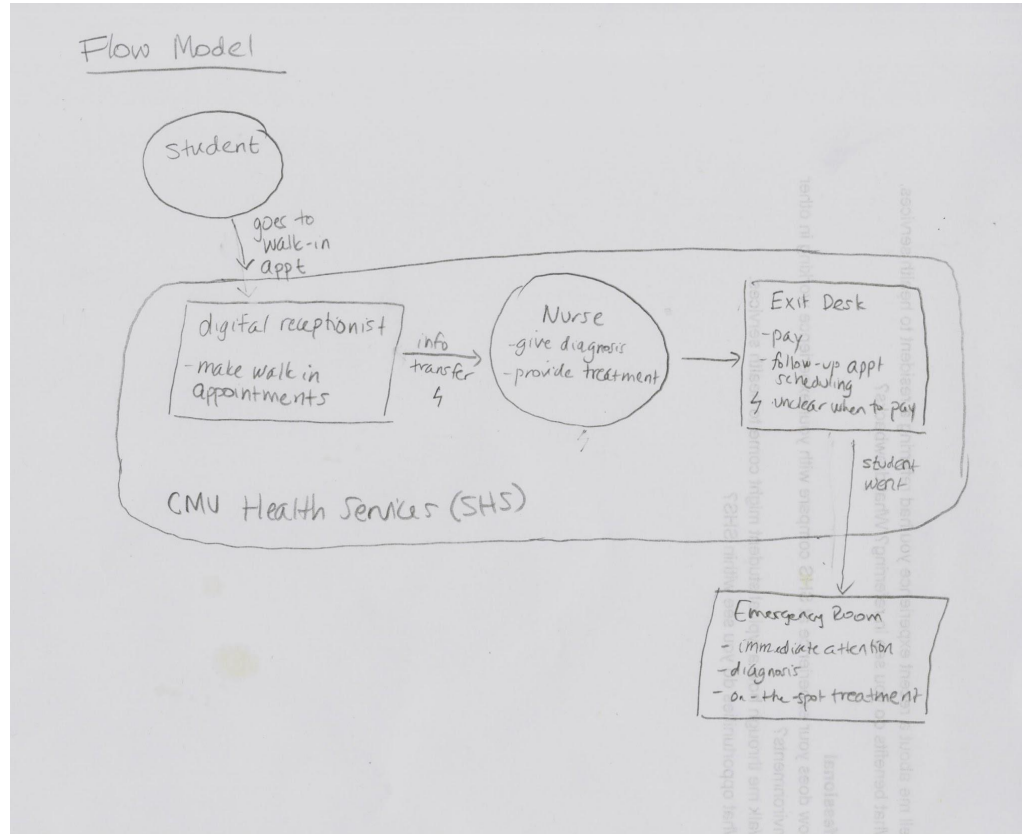 Flow Model
student
goes to
walk-in
appt
digital receptionist
- make walk in
appointments
info
transfer
Nurse
- give diagnosis
- provide treatment
Exit Desk
- pay
- follow-up appt
scheduling
unclear when to pay
CMU Health Services (SHS)
student
went
Emergency Room
- immediate attention
- diagnosis
- on-the-spot treatment